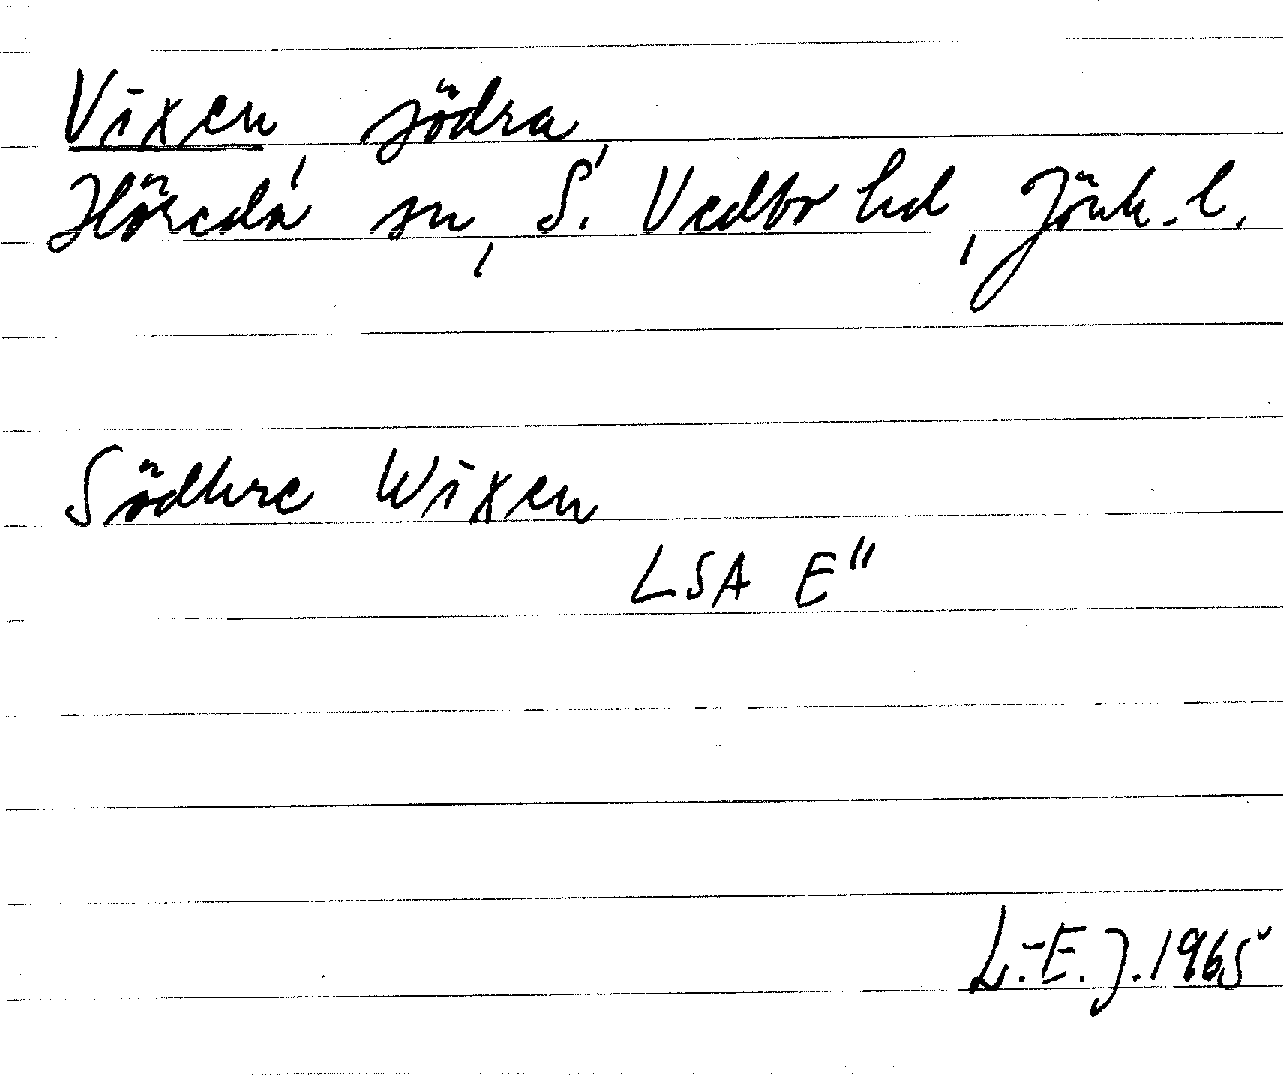 Vixen, södra,
Höreda sn, S. Vedbo hd, Jönk. l.
Södhre Wixen
LSA E"
L.-E. J. 1965